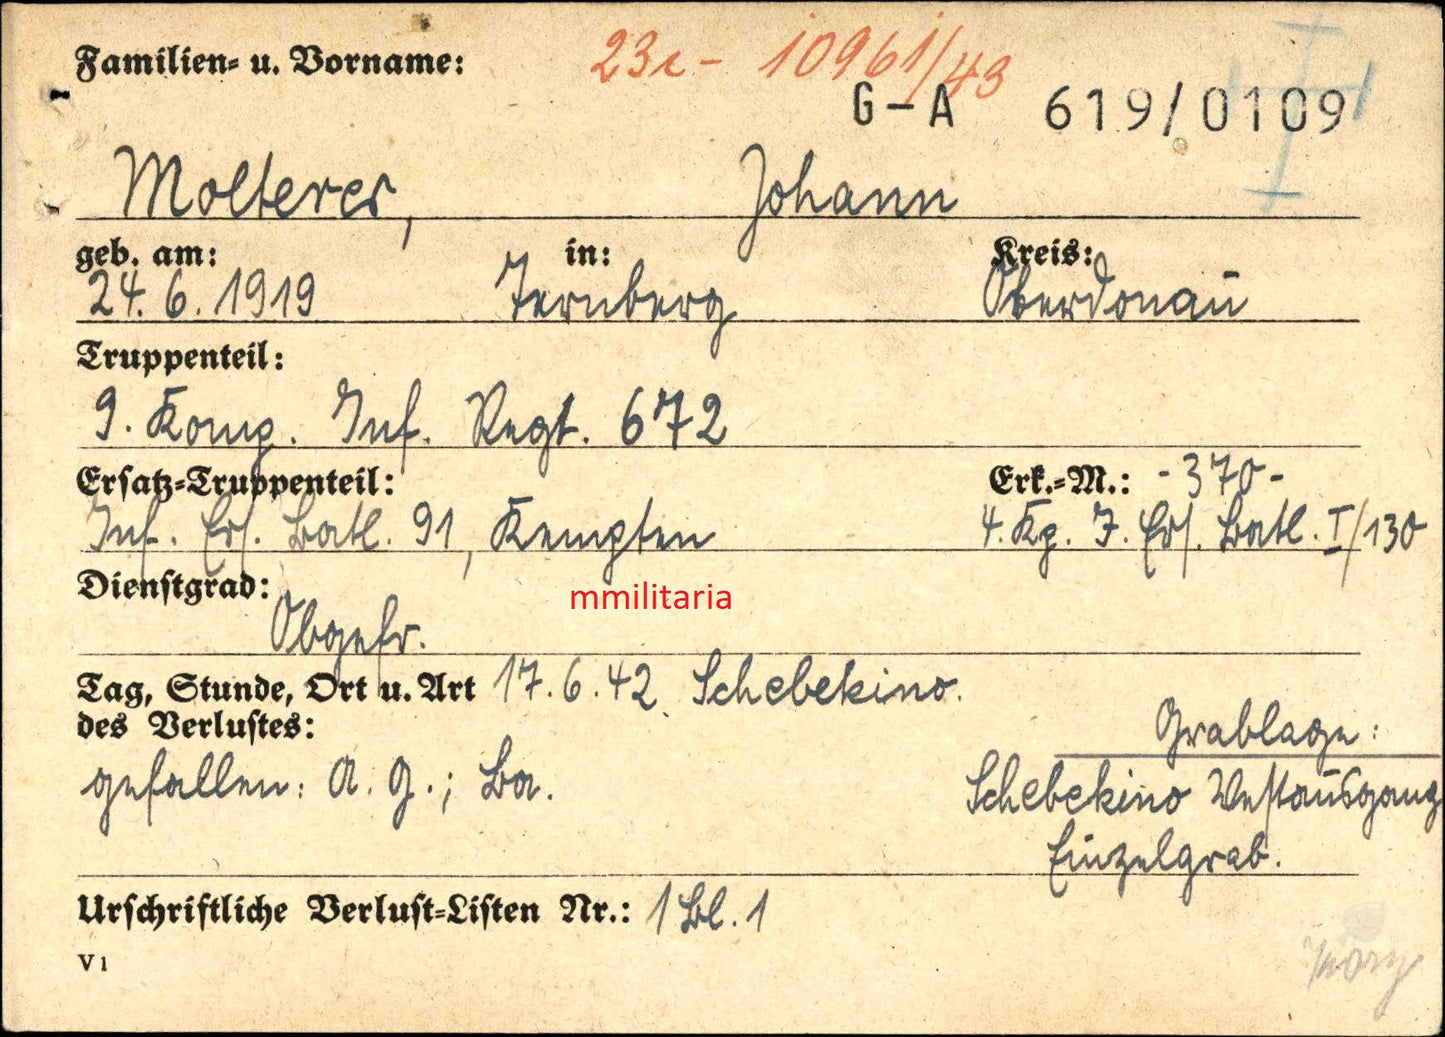 Familien- u. Vorname:
23c - 10961/43
G-A 619/0109
I
Molterer, Johann
geb. am: in: Kreis:
24.6.1919 Ternberg Oberdonau
Truppenteil:
9. Komp. Inf. Regt. 672
Ersatz-Truppenteil: Erk.-M.: -370-
Inf. Ers. Batl. 91, Kempten 4. Kp. I. Ers. Batl. I/130
Dienstgrad:
mmilitaria
Obgefr.
Tag, Stunde, Ort u. Art 17.6.42 Schebekino.
des Verlustes:
Grablage:
gefallen: A. G.; Ba. Schebekino Westausgang
Einzelgrab.
Urschriftliche Verlust-Listen Nr.: 1 Bl. 1
V 1